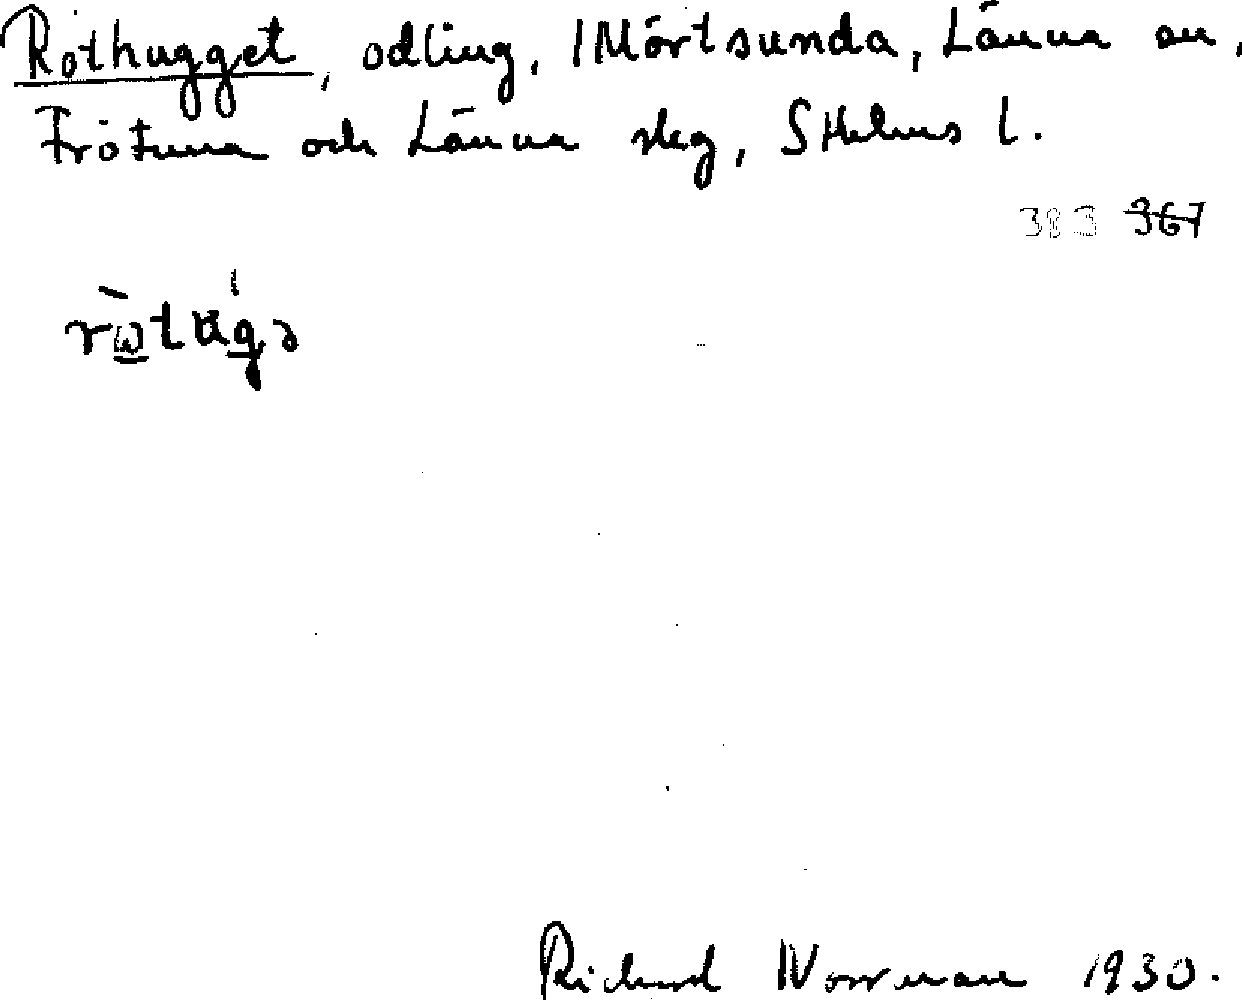 Rothugget, odling, Mörtsunda, Länna sn,
Frötuna och Länna slg, Sthlms l.
383 967
Richard Norrman 1930.